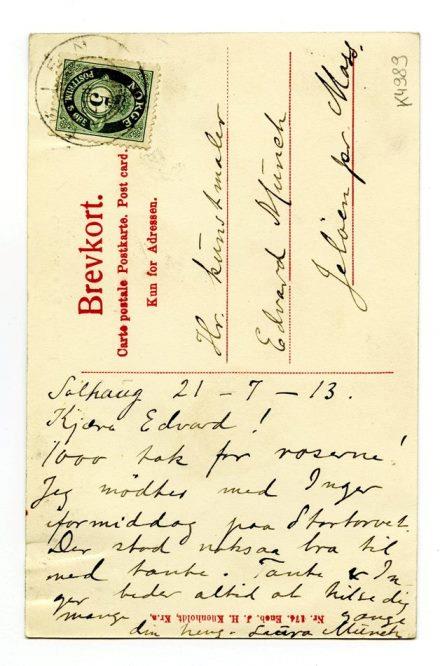 NORGE
5
POSTFRIM. 5 ØRE
Brevkort.
Carte postale Postkarte. Post card.
Kun for Adressen.
Hr. kunstmaler
Edvard Munch
Jeløen pr Moss.
K4989
Solhaug 21 - 7 - 13.
Kjære Edvard!
1000 tak for roserne!
Jeg mødtes med Inger
formiddag paa Stortorvet.
Der stod noksaa bra til
med tante. Tante & In
ger beder altid at hilse dig
mange gange
din heng. Laura Munch
Nr. 174. Eneb. J. H. Küenholdt, Kr.a.